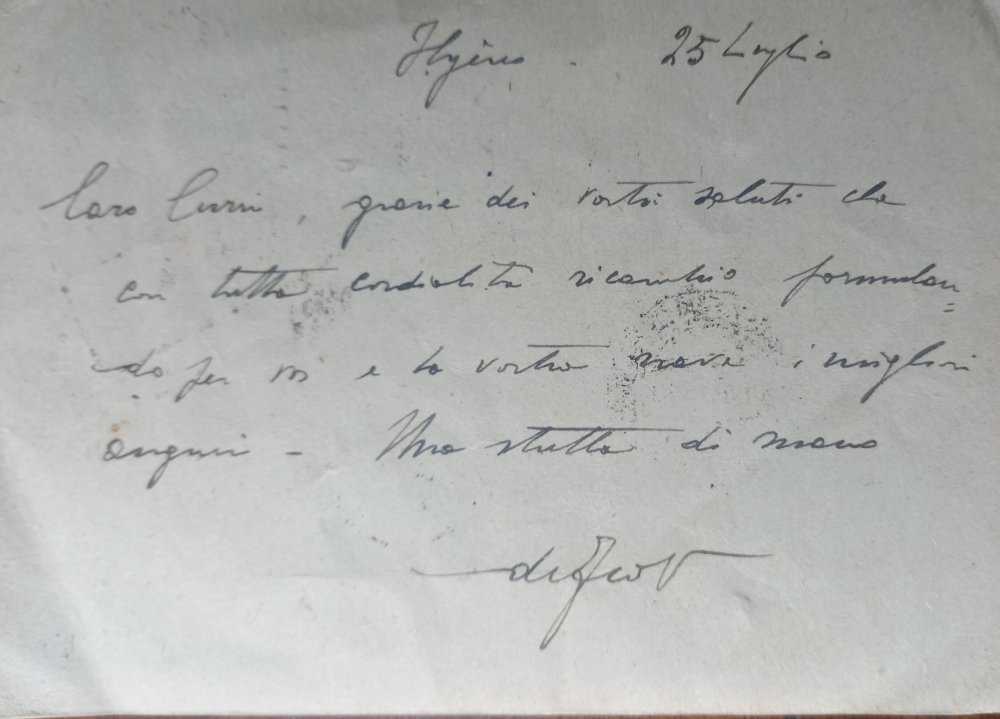 Hyères - 25 Luglio
Caro , grazie dei vostri saluti che
con tutta cordialità ricambio formulan=
do per voi e la vostra nave i migliori
auguri - Una stretta di mano